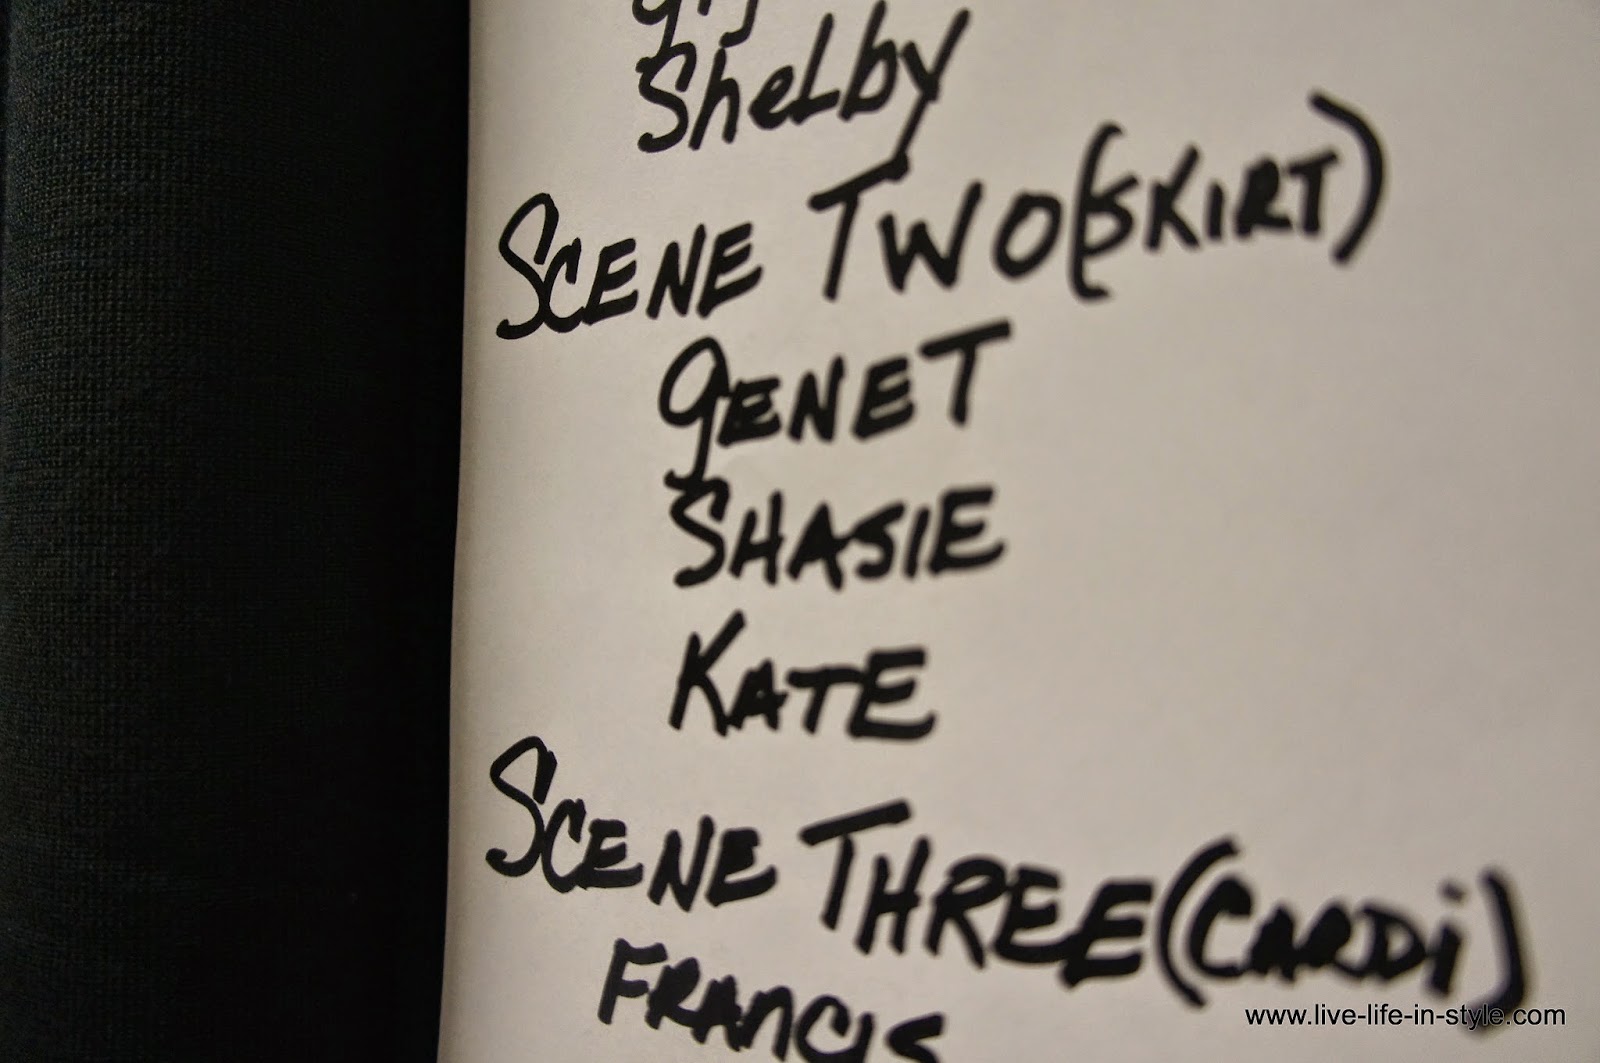 Shelby
SCENE TWO (SKIRT)
GENET
SHASIE
KATE
SCENE THREE (CARDi)
FRANCIS
www.live-life-in-style.com